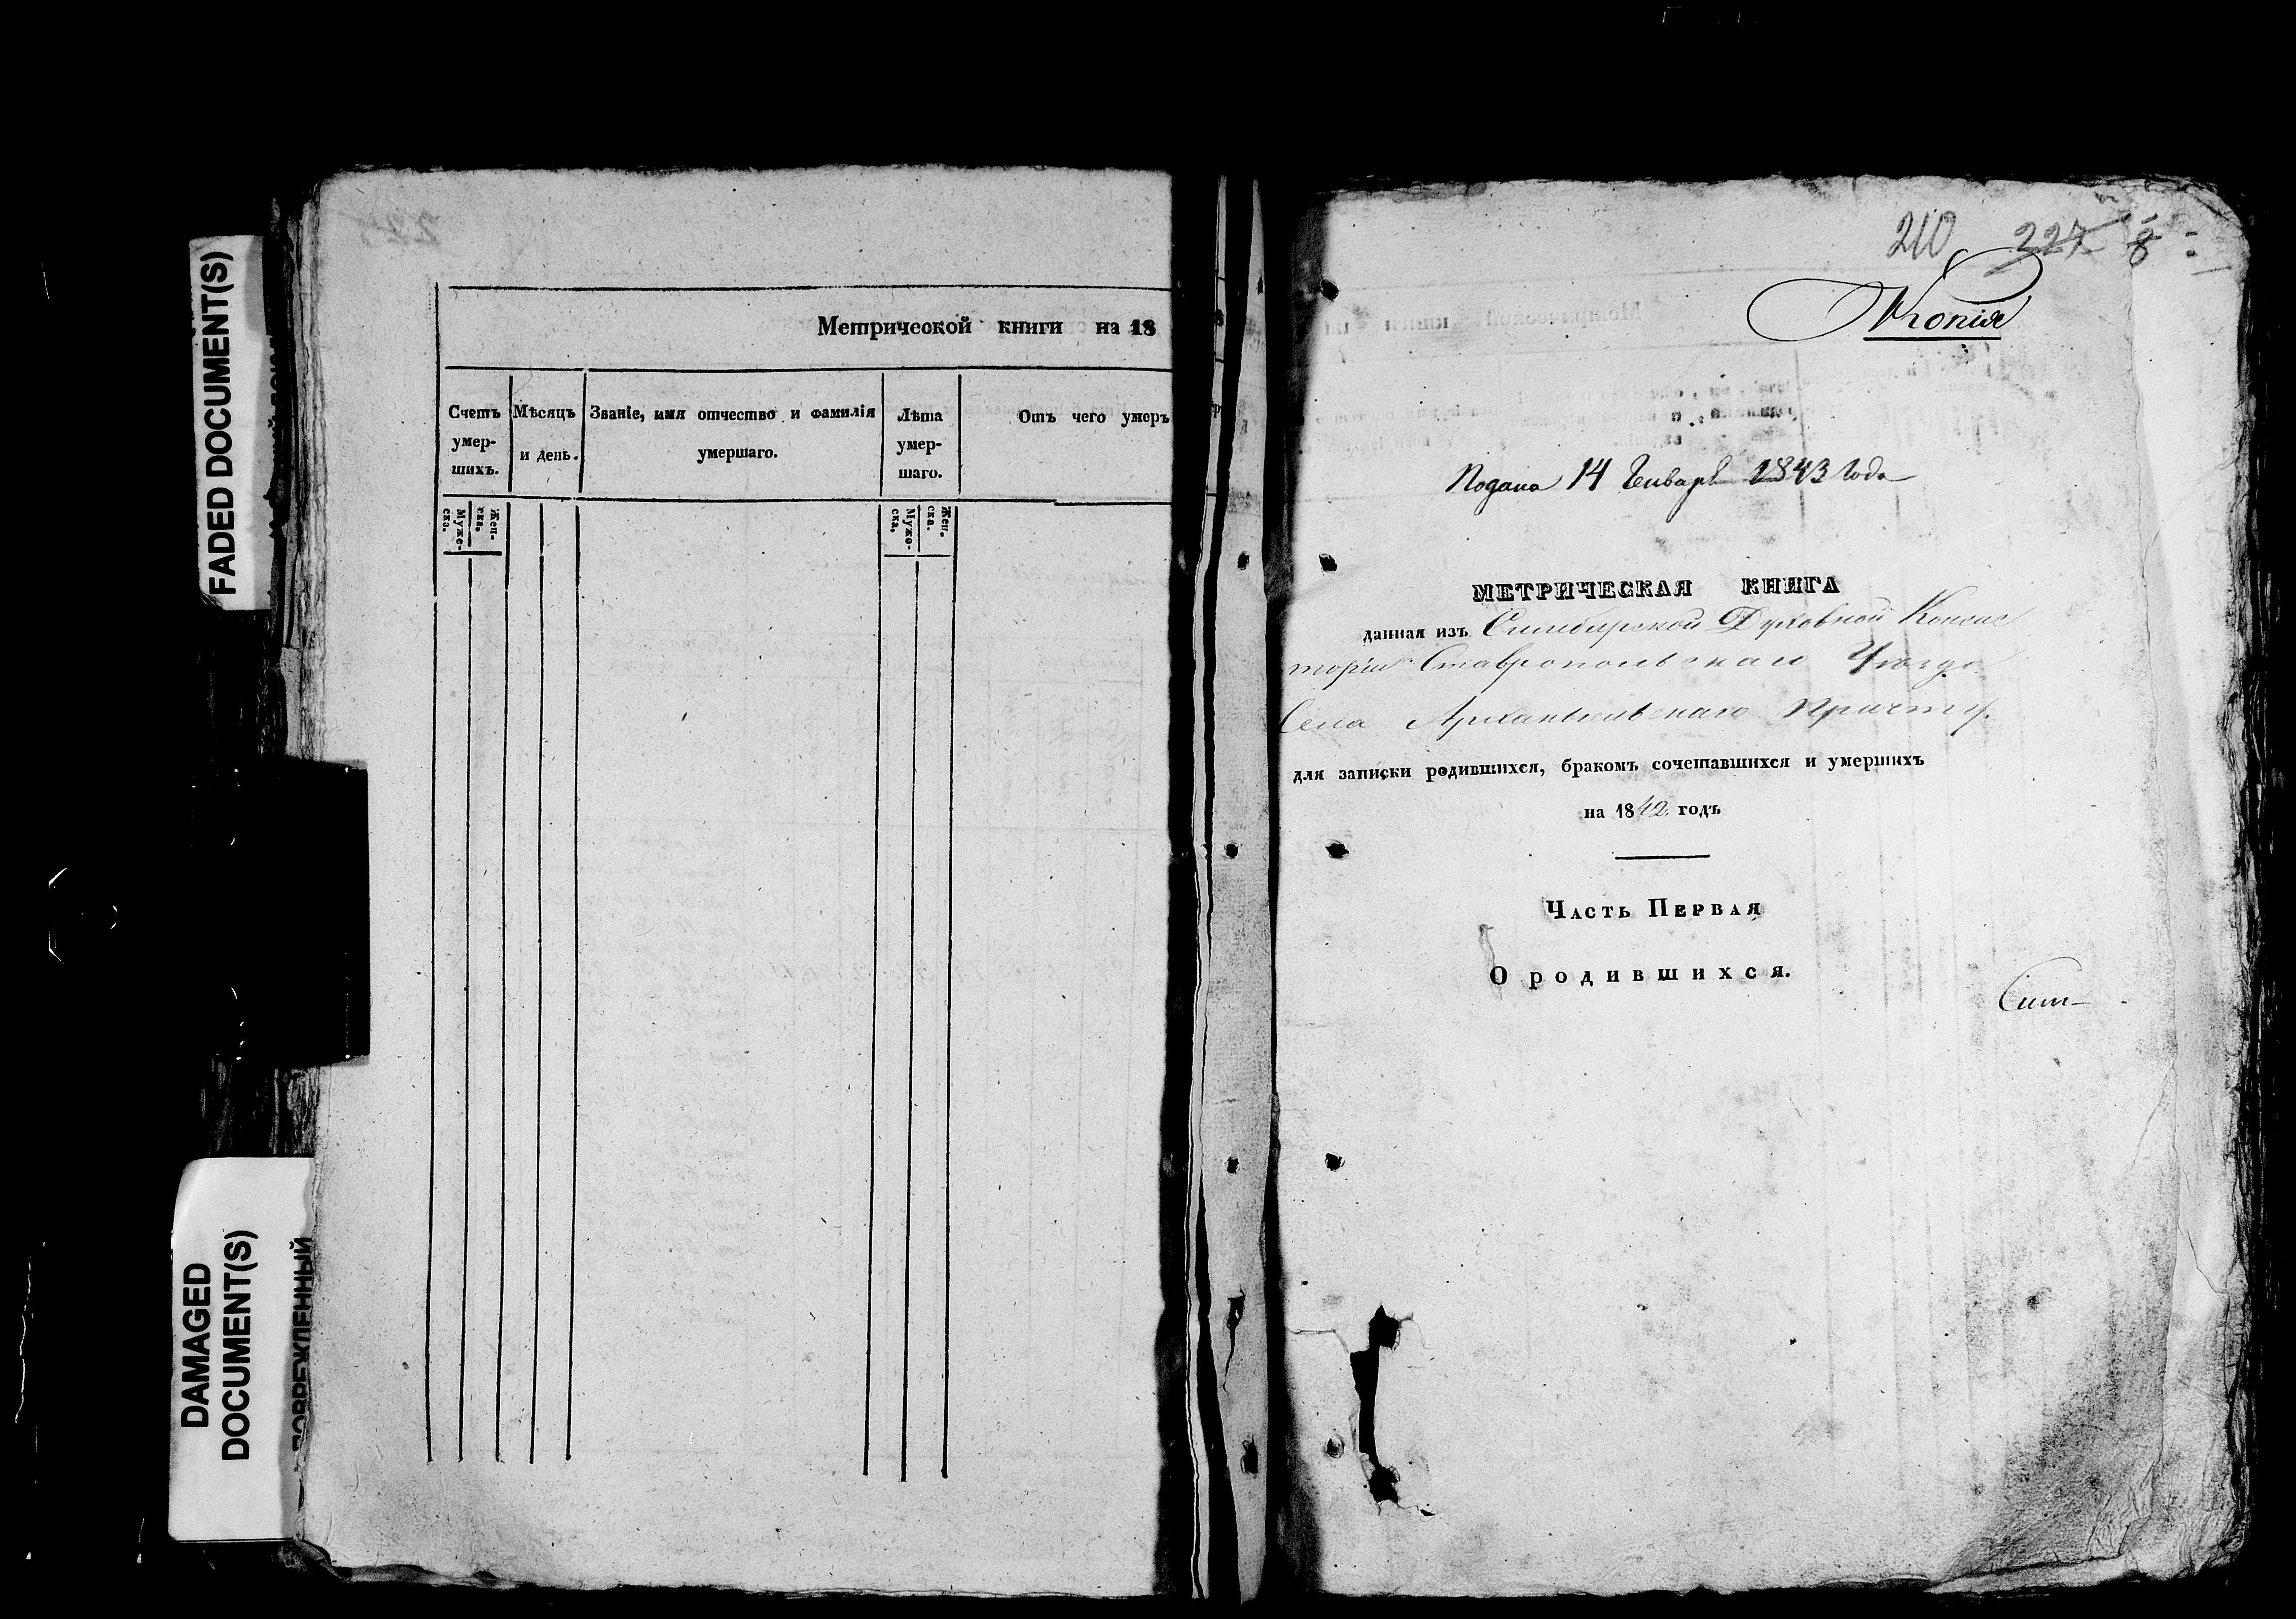 FADED DOCUMENT(S)
DAMAGED
DOCUMENT(S)
ПОВРЕЖДЕННЫЙ
Метрической книги на 18
Счетъ умер- шихъ.
Мѣсяцъ и день.
Званіе, имя отчество и фамилія умершаго.
Лѣта умер- шаго.
Отъ чего умеръ
Муже- ска.
Жен- ска.
Муже- ска.
Жен- ска.
210 227 8
Копія
Подана 14 Генваря 1843 года
МЕТРИЧЕСКАЯ КНИГА
данная изъ Симбирской Духовной Консис
торіи Ставропольскаго Уезда
Села Архангельскаго Причту.
для записки родившихся, бракомъ сочетавшихся и умершихъ
на 1842 годъ
Часть Первая
О родившихся.